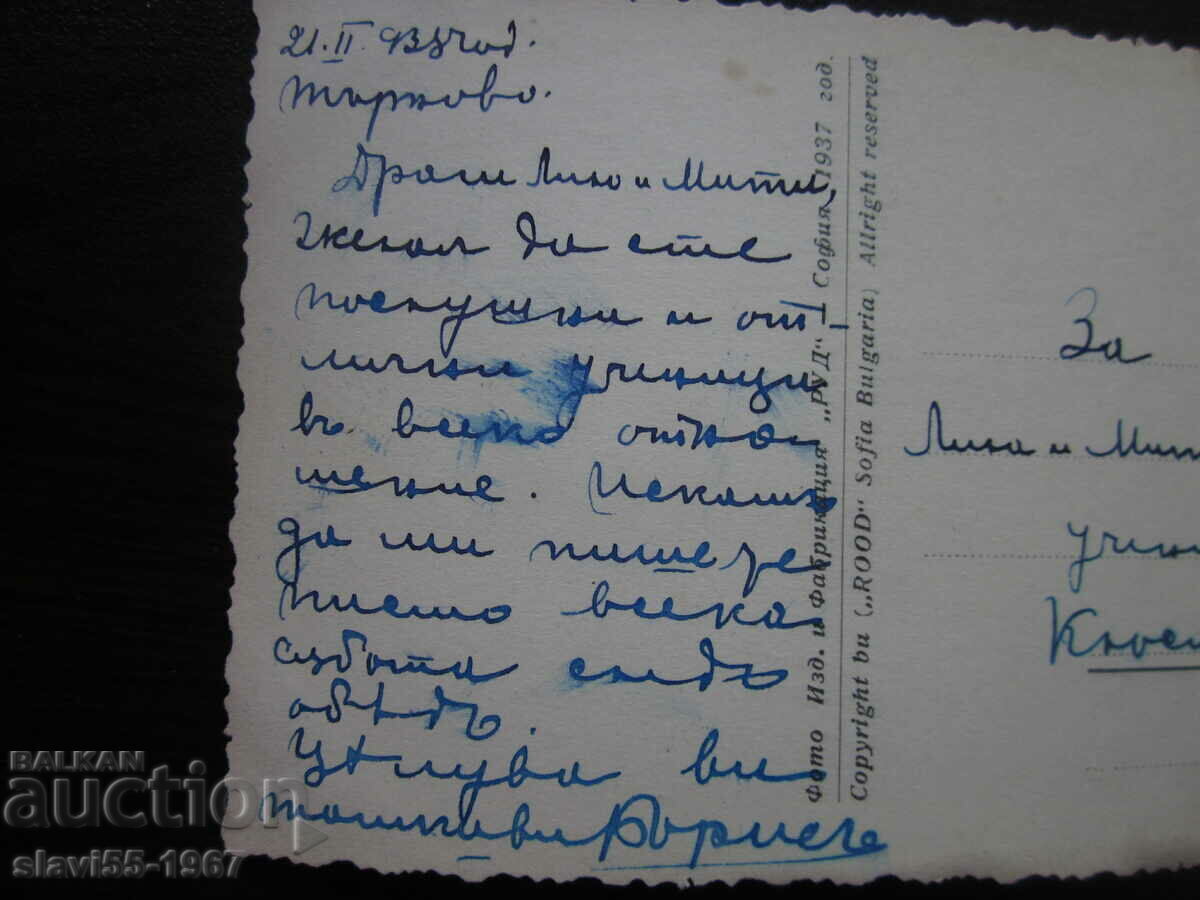 21.II.938 год.
Търново.
Драги Лино и Мити,
Желая да сте
послушни и от-
лични ученици
въ всяко отно-
шение. Искамъ
да ми пишете
писмо всяка
събота следъ
обѣдъ.
Цѣлува ви
За
Лина и Мит
учени
Кюст
Фото Изд. и Фабрикация „РУД“ София 1937 год.
Copyright bu („ROOD“ Sofia Bulgaria) Allright reserved
BALKAN
auction
slavi55-1967